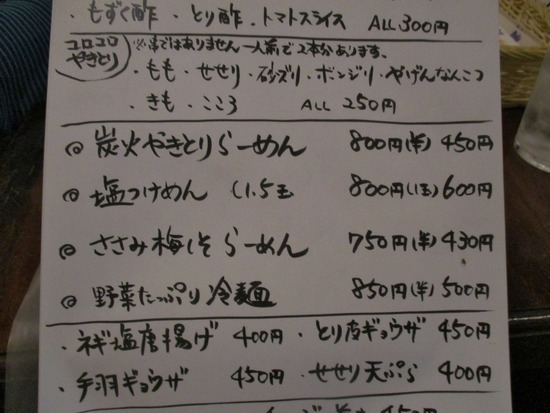 ・もずく酢 ・とり酢 ・トマトスライス ALL 300円
コロコロやきとり
※串ではありません 一人前で2本分あります。
・もも・せせり・砂ズリ・ボンジリ・やげんなんこつ
・きも・こころ ALL 250円
◎ 炭火やきとりらーめん 800円(半)450円
◎ 塩つけめん (1.5玉 800円(1玉)600円
◎ ささみ梅しそらーめん 750円(半)430円
◎ 野菜たっぷり冷麺 850円(半)500円
・ネギ塩唐揚げ 400円 ・とり皮ギョウザ 450円
・手羽ギョウザ 450円 ・せせり天ぷら 400円